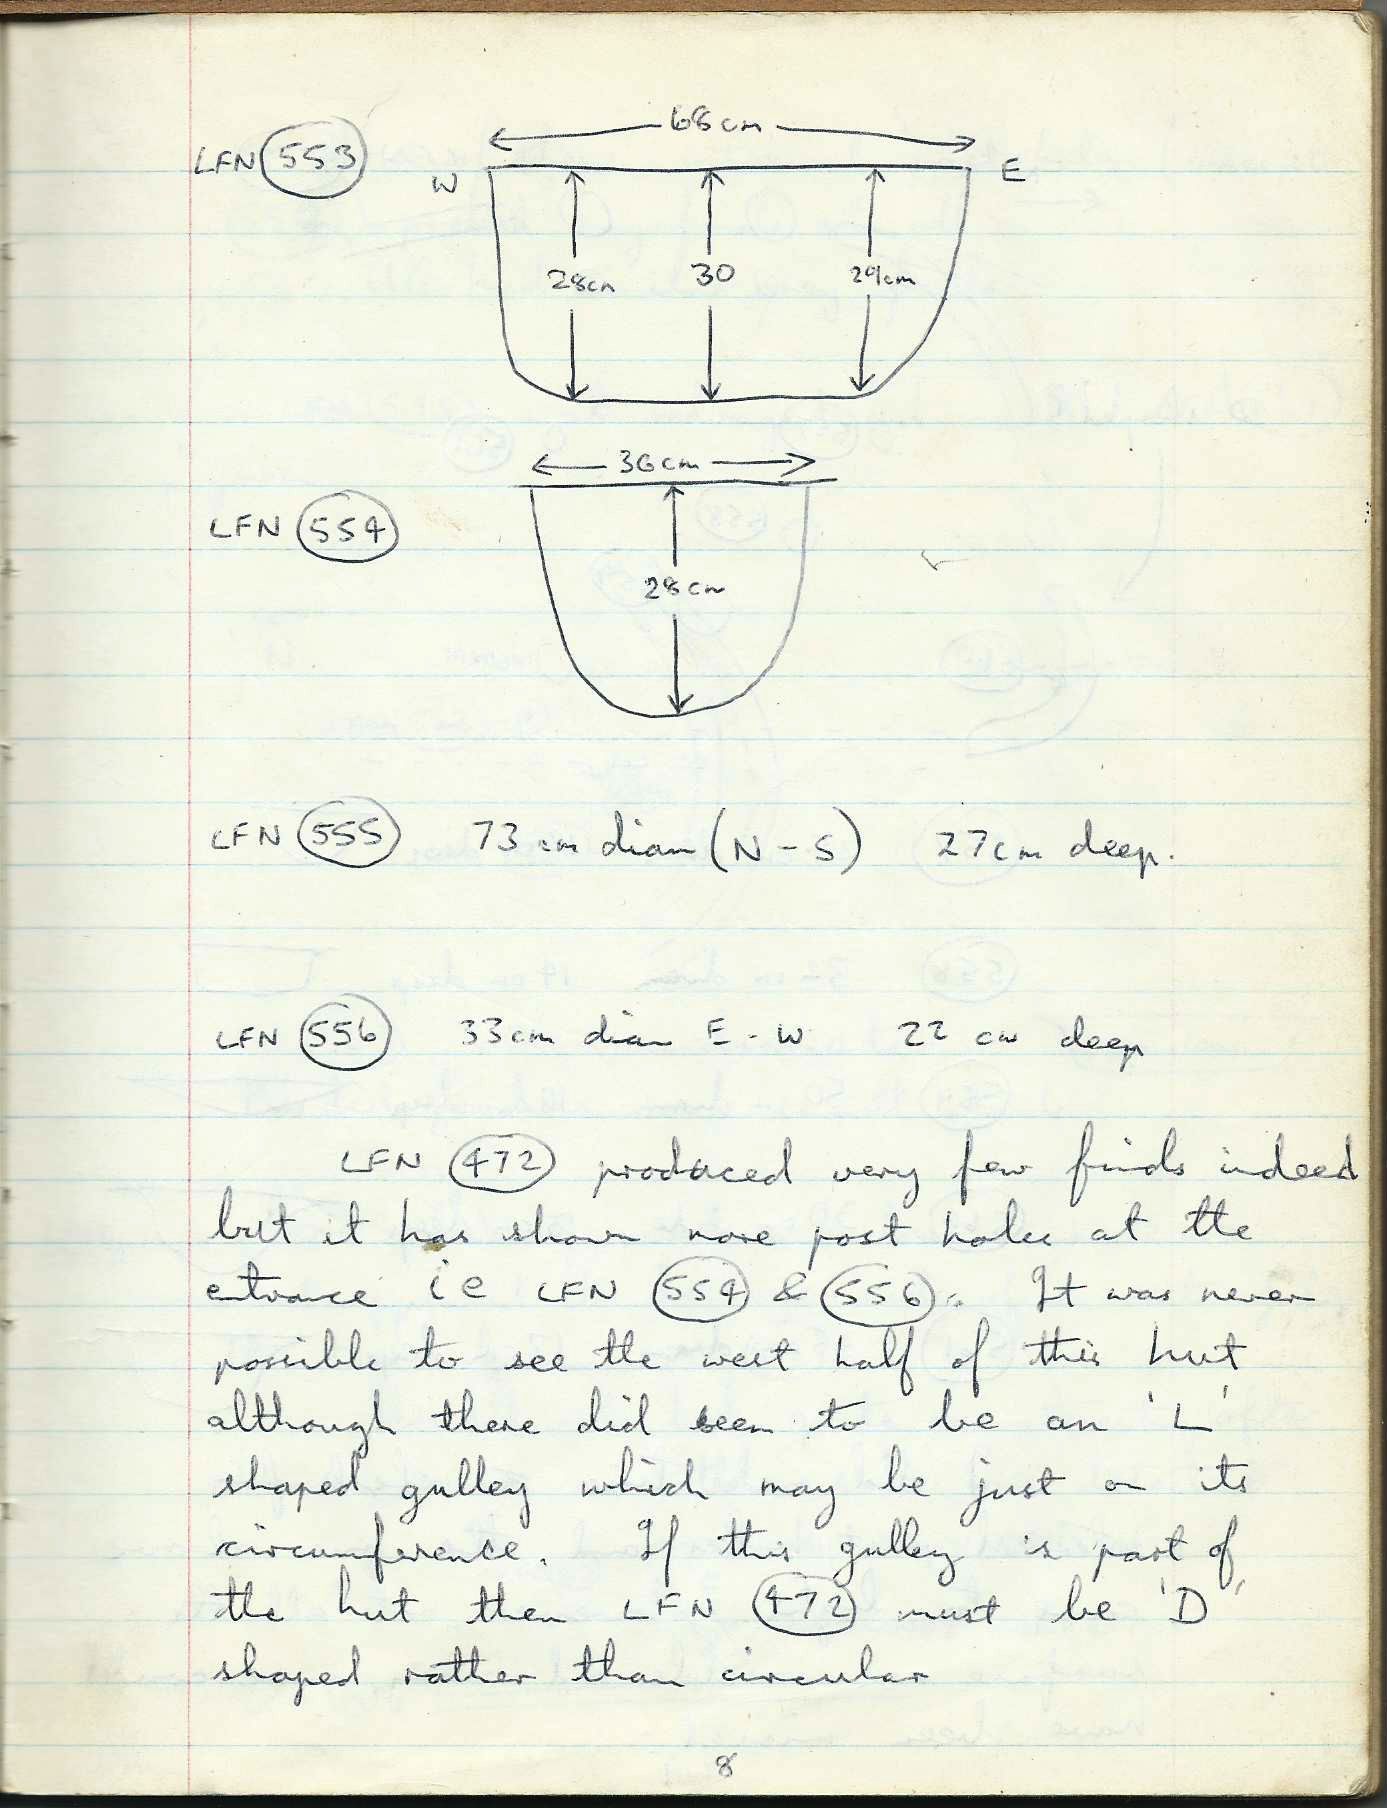 68cm
LFN 553 W E
28cm 30 29cm
36cm
LFN 554
28cm
LFN 555 73 cm diam (N-S) 27cm deep.
LFN 556 33cm diam E-W 22 cm deep
LFN 472 produced very few finds indeed
but it has shown more post holes at the
entrance ie LFN 554 & 556. It was never
possible to see the west half of this hut
although there did seem to be an 'L'
shaped gulley which may be just on its
circumference. If this gulley is part of
the hut then LFN 472 must be 'D'
shaped rather than circular
8